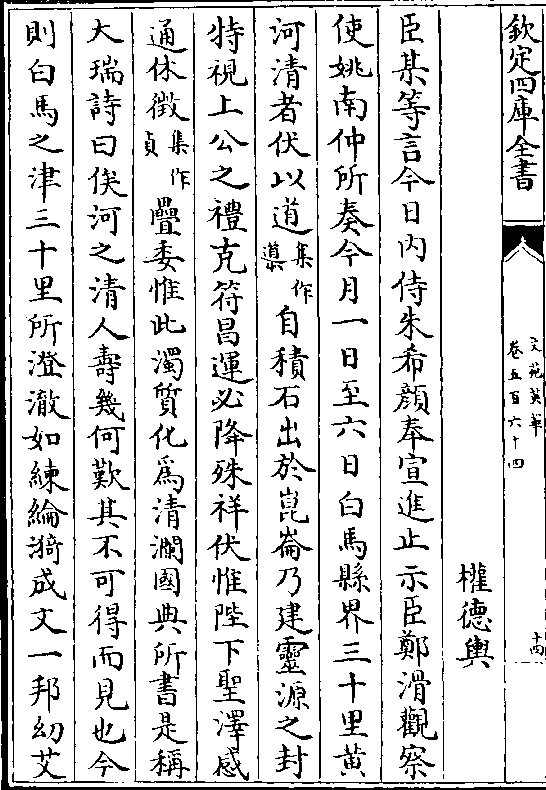 欽定四庫全書
文苑英華
卷五百六十四
十四
權德輿
臣某等言今日内侍朱希顔奉宣進止示臣鄭滑觀察
使姚南仲所奏今月一日至六日白馬縣界三十里黄
河清者伏以道集作導自積石出於崑崙乃建靈源之封
特視上公之禮克符昌運必降殊祥伏惟陛下聖澤感
通休徵集作貞疊委惟此濁質化爲清瀾國典所書是稱
大瑞詩曰俟河之清人壽幾何歎其不可得而見也今
則白馬之津三十里所澄澈如練綸漪成文一邦幼艾